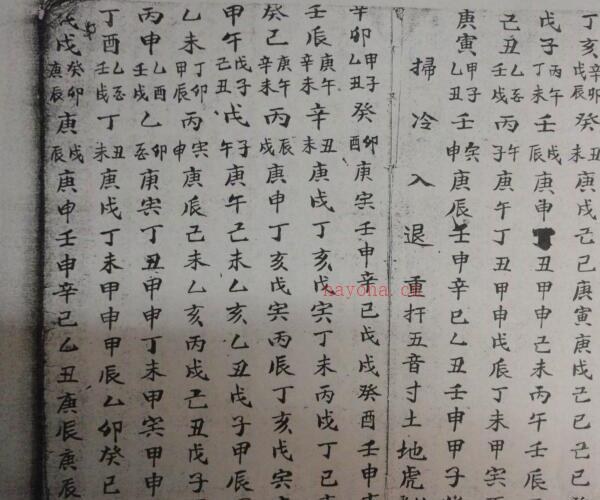 丁亥癸未戌己己庚寅庚戌己己
戊子丙午丁未壬辰戌庚申丁丑甲申己未丙午壬辰
己丑壬戌丙午子庚午丁丑甲申戊辰丁未甲寅
庚寅甲子乙丑壬寅申庚辰壬申辛巳乙丑壬申甲子
掃冷入退重扞五音寸土地虎
辛卯甲子乙丑癸卯酉庚寅壬申辛巳戊戌癸酉壬申
壬辰庚午辛未辛丑未庚戌丁亥戊寅丁未丙戌丁己
癸巳庚午辛未丙辰戌庚申丁亥戊寅丙辰丁亥戊寅
甲午戊子己丑戊子午庚午己未乙亥乙丑戊子甲辰
乙未丁卯甲辰丙寅申庚辰己未乙亥丙戌己丑戊子
丙申乙酉壬戌乙卯庚寅丁丑甲申丁未甲寅甲申
丁酉壬戌丁丑未庚戌丁未甲申甲辰乙卯癸巳
戊戌癸卯庚辰庚戌辰庚申壬申辛巳乙丑庚辰庚辰